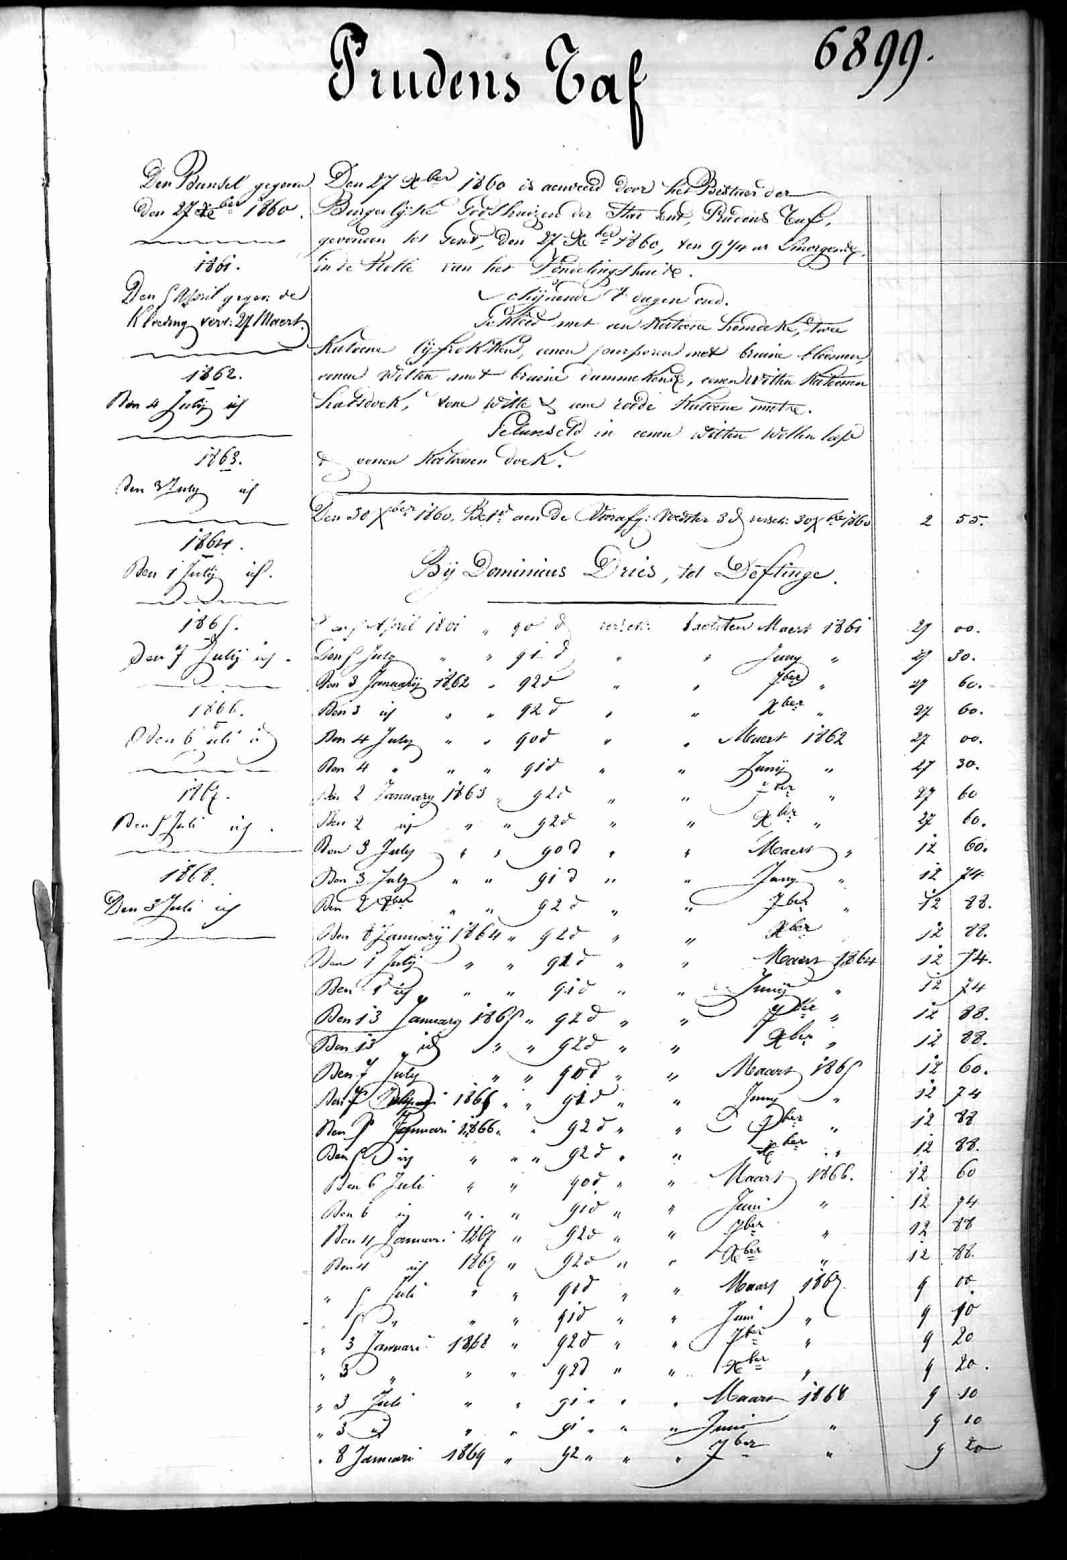 6899.
Prudens Taf
Den Bunsel gegeven
den 27 Xber 1860.
1861.
Den 5 April gegev: de
Kleeding vers: 27 Maert.
1862.
Den 4 July id
1863.
Den 3 July id
1864.
Den 1 July id.
1865.
Den 7 July id.
1866.
Den 6 Juli id
1867.
Den 5 Juli id.
1868.
Den 3 Juli id
Den 27 Xber 1860 is aenveerd door het Bestuer der
Burgerlyke Godshuizen der Stad Gent, Prudens Taf,
gevonden tot Gend, den 27 Xber 1860, ten 9 3/4 ur Smorgends,
in de Rolle van het Vondelingshuis.
Schijnende 8 dagen oud.
Gekleed met een Katoene hemdeke, twee
Katoene lijfrokken, eenen purperen met bruine bloemen,
eenen witten met bruine dammekens, eenen witten Katoenen
halsdoek, eene witte & eene roode Katoene mutse.
Gebunseld in eenen witten wollen lap
& eenen Katoenen doek.
Den 30 Xber 1860. Bet. aen de Voedster 3 d versch: 30 Xber 1860 2 55.
Bij Dominicus Dries, tot Deftinge.
Den 5 April 1861 " 90 d versch: Maert 1861 27 00.
Den 5 July " " 91 d " " Juny " 27 30.
Den 3 January 1862 " 92 d " " 7ber " 27 60.
Den 3 id " " 92 d " " Xber " 27 60.
Den 4 July " " 90 d " " Maert 1862 27 00.
Den 4 " " " 91 d " " Junij " 27 30.
Den 2 January 1863 " 92 d " " 7ber " 27 60
Den 2 id " " 92 d " " Xber " 27 60.
Den 3 July " " 90 d " " Maert " 12 60.
Den 3 July " " 91 d " " Juny " 12 74
Den 2 8ber " " 92 d " " 7ber " 12 88.
Den 8 January 1864 " 92 d " " Xber 12 88.
Den 1 July " " 91 d " " Maert 1864 12 74.
Den 1 id " " 91 d " " Junij " 12 74
Den 13 January 1865 " 92 d " " 7ber " 12 88.
Den 13 id " " 92 d " " Xber " 12 88.
Den 7 July " " 90 d " " Maart 1865 12 60.
Den 7 1865 " " 91 d " " Juny " 12 74
Den 5 Januari 1866. " 92 d " " 7ber " 12 88
Den 5 id " " " 92 d " " Xber " 12 88.
Den 6 Juli " " 90 d " " Maart 1866. 12 60
Den 6 id " " 91 d " " Juni " 12 74
Den 4 Januari 1867 " 92 d " " 7ber " 12 88
Den 4 id 1867 " 92 d " " Xber " 12 88
" 5 Juli " " 90 d " " Maart 1867. 9 00
" 5 " " " 91 d " " Juni " 9 10
" 3 Januari 1868 " 92 d " " 7ber " 9 20
" 3 " " " 92 d " " Xber " 9 20.
" 3 Juli " " 91 " " " Maart 1868 9 10
" 3 id " " 91 " " " Juni " 9 10
" 8 Januari 1869 " 92 " " " 7ber " 9 20